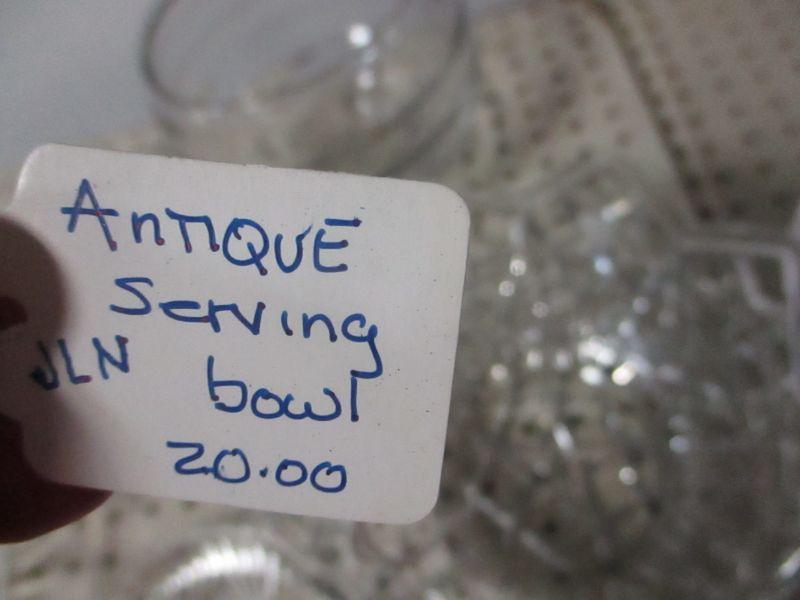 ANTIQUE
Serving
JLN bowl
20.00